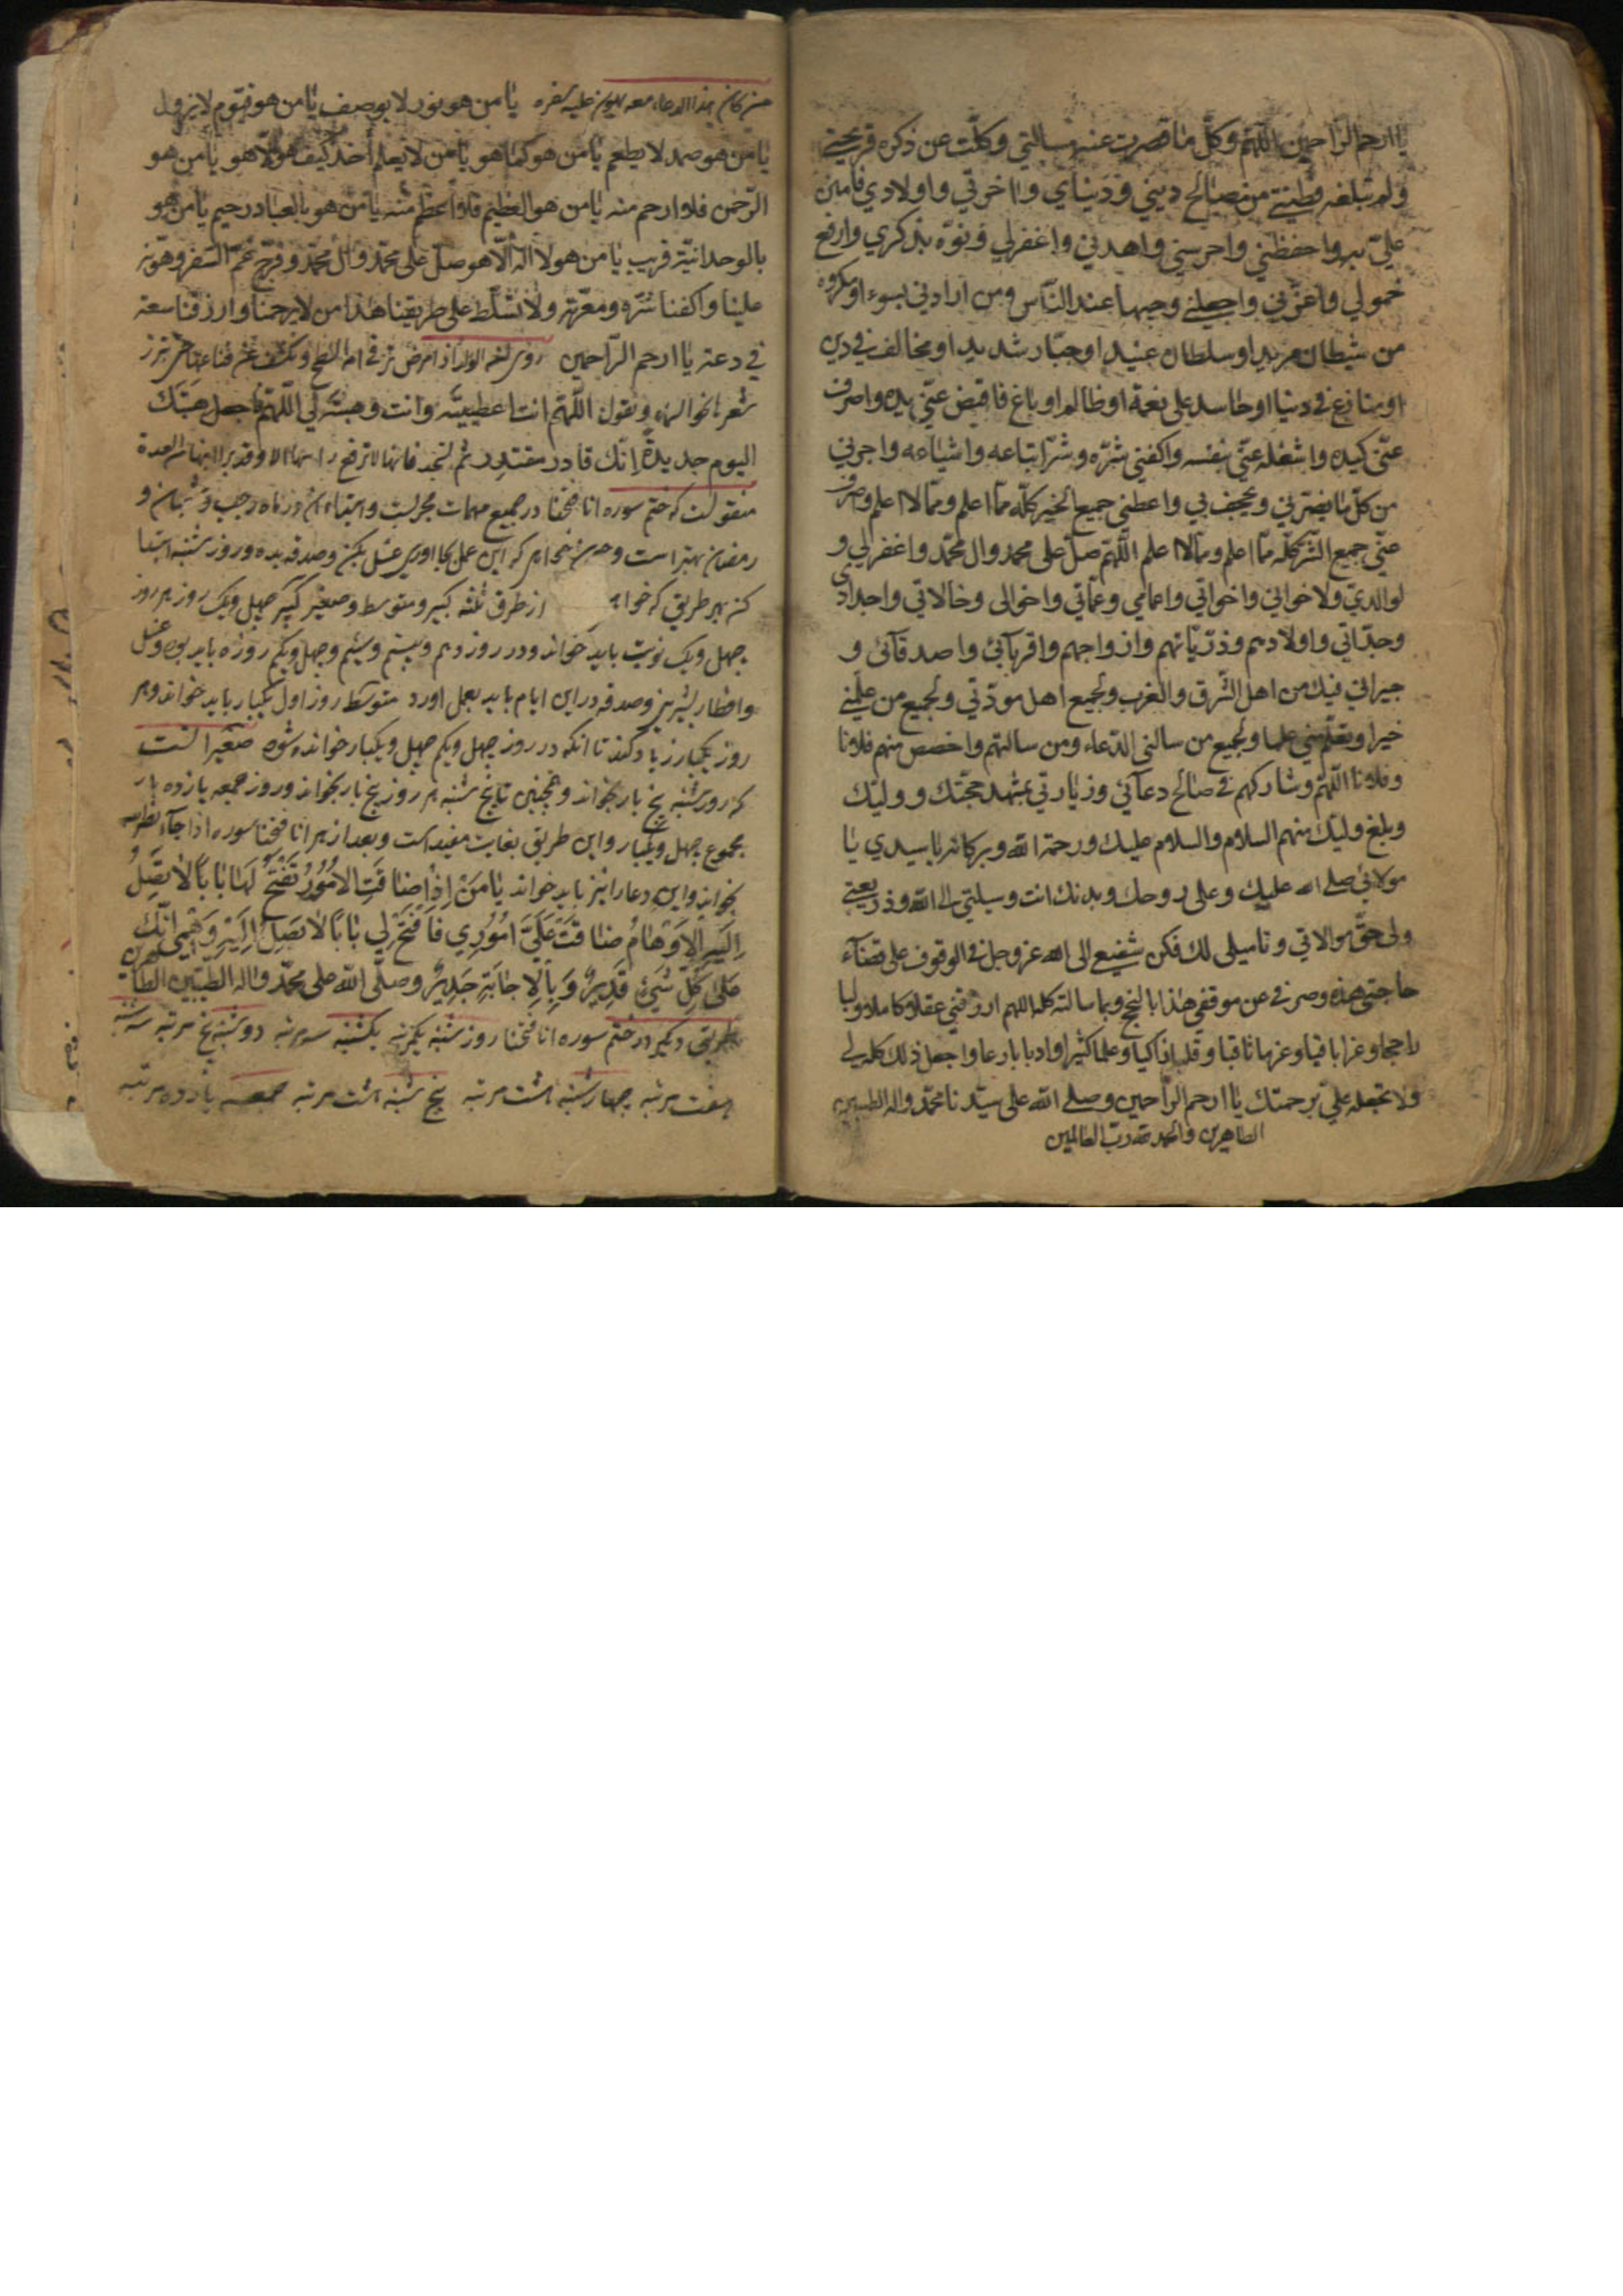 يا ارحم الرّاحمين اللّهمّ وكلّ ما قصرت عنه مسالتي وكلّت عن ذكره قريحتي
ولم تبلغه فطنتي من مصالح ديني ودنياي واخرتي واولادي فامنن
عليّ به واحفظني واحرسني واهدني واغفرلي ونوّه بذكري وارفع
خمولي واعزّني واجعلني وجيها عند النّاس ومن ارادني بسوء او مكروه
من شيطان مريد او سلطان عنيد او جبّار شديد او مخالف في دين
او منازع في دنيا او حاسد على نعمة او ظالم او باغ فاقبض عنّي يده واصرف
عنّي كيده واشغله عنّي بنفسه واكفني شرّه وشرّ اتباعه واشياعه واجرني
من كلّ ما يضرّني ويجحف بي واعطني جميع الخير كلّه ممّا اعلم وممّا لا اعلم واصرف
عنّي جميع الشّر كلّه ممّا اعلم وممّا لا اعلم اللّهمّ صلّ على محمد وال محمّد واغفرلي و
لوالديّ ولاخواني واخواتي واعمامي وعمّاتي واخوالي وخالاتي واجدادي
وجدّاتي واولادهم وذرّياتهم وازواجهم واقربائي واصدقائي و
جيراني فيك من اهل الشّرق والغرب ولجميع اهل مودّتي ولجميع من علّمني
خيرا او تعلّم منّي علما ولجميع من سالني الدّعاء ومن سالتهم واخصص منهم فلانا
وفلانا اللّهمّ وشاركهم في صالح دعائي وزيارتي بمشهد حجّتك ووليّك
وبلغ وليّك منهم السلام والسلام عليك ورحمة الله وبركاته يا سيدي يا
مولائي صلى الله عليك وعلى روحك وبدنك انت وسيلتي الى الله وذريعتي
ولي حقّ موالاتي وتاميلي لك فكن شفيعي الى الله عز وجل في الوقوف على قضاء
حاجتي هذه وصرفي عن موقفي هذا بالنجح وبما سالته كله اللهم ارزقني عقلا كاملا ولبا
راجحا وعزا باقيا وقلبا زاكيا وعلما كثيرا وادبا بارعا واجعل ذلك كله لي
ولا تجعله عليّ برحمتك يا ارحم الرّاحمين وصلى الله على سيّدنا محمّد واله الطيبين
الطاهرين والحمد لله ربّ العالمين
من كان هذا الدعاء معه يهون عليه سفره يا من هو نور لا يوصف يا من هو قيّوم لا يزول
يا من هو صمد لا يطعم يا من هو كما هو يا من لا يعلم احد كيف هو الّا هو يا من هو
الرّحمن فلا ارحم منه يا من هو العظيم فلا اعظم منه يا من هو بالعباد رحيم يا من هو
بالوحدانيّة قريب يا من هو لا اله الّا هو صلّ على محمّد وال محمّد وفرّج غمّ السفر وهوّنه
علينا واكفنا شرّه ومعرّته ولا تسلّط على طريقنا هذا من لا يرحمنا وارزقنا سعة
في دعة يا ارحم الرّاحمين
شعرها نحو السماء وتقول اللّهمّ انت اعطيتنيه وانت وهبته لي اللّهمّ فاجعل هبتك
اليوم جديدة انّك قادر مقتدر ثم تسجد فانها لا ترفع راسها الا وقد برا ابنها
منقولست كه ختم سوره انا فتحنا در جميع مهمات مجربست وابتداء ان در ماه رجب وشعبان و
رمضان بهتر است وچون خواهد كه اين عمل بجا اورد غسل بكند وصدقه بدهد وروز شنبه ابتدا
كند بهر طريقى كه خواهد از طرق ثلثه كبير ومتوسط وصغير كبير چهل ويك روز هر روز
چهل ويك نوبت بايد خواند ودر روز دهم وبيستم وسيم وچهل ويكم روزه بايد بود وغسل
وافطار بشيرينى وصدقه در اين ايام بايد بعمل اورد متوسط روز اول يكبار بايد خواند وهر
روز يكبار زياد كند تا انكه در روز چهل ويكم چهل ويكبار خوانده شود صغير انست
كه روز شنبه پنج بار بخواند وهمچنين تا پنج شنبه هر روز پنج بار بخواند وروز جمعه يازده بار
مجموع چهل ويكبار واين طريق بغايت مفيد است وبعد از هر انا فتحنا سوره اذا جاء نصر الله
بخواند واين دعا را نيز بايد خواند يَا مَنْ اِذَا ضَاقَتِ الاُمُوُرُ تَفْتَحُ لَهَا بَابًا لا يَصِلُ
اِلَيْهِ الاَوْهَامُ ضَاقَتْ عَلَيَّ اُمُوُرِي فَافْتَحْ لِي بَابًا لا يَصِلُ اِلَيْهِ وَهْمِي اِنَّكَ
عَلَى كُلِّ شَيْءٍ قَدِيرٌ وَبِالاِجَابَةِ جَدِيرٌ وصلّى اللّه على محمّد واله الطيّبين الطاهرين
طريق ديكر در ختم سوره انا فتحنا روز شنبه يكمرتبه يكشنبه سه مرتبه دوشنبه پنج مرتبه سه شنبه
هفت مرتبه چهارشنبه هشت مرتبه پنج شنبه هشت مرتبه جمعه يازده مرتبه